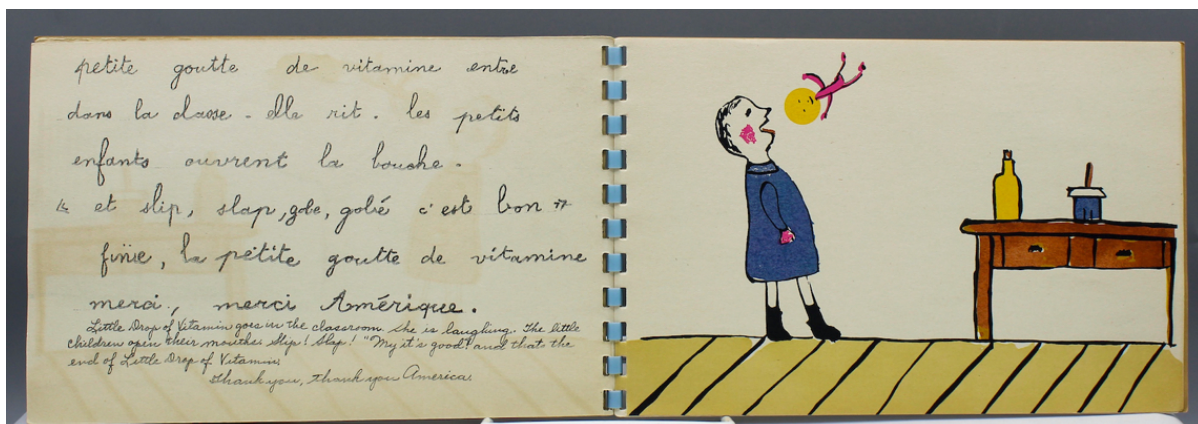 petite goutte de vitamine entre
dans la classe - elle rit. les petits
enfants ouvrent la bouche -
« et slip, slap, gobe, gobé c'est bon »
finie, la petite goutte de vitamine
merci, merci Amérique.
Little Drop of Vitamin goes in the classroom. She is laughing. The little
children open their mouths. Slip! Slap! "My it's good!" and that the
end of Little Drop of Vitamin
Thank you, thank you America